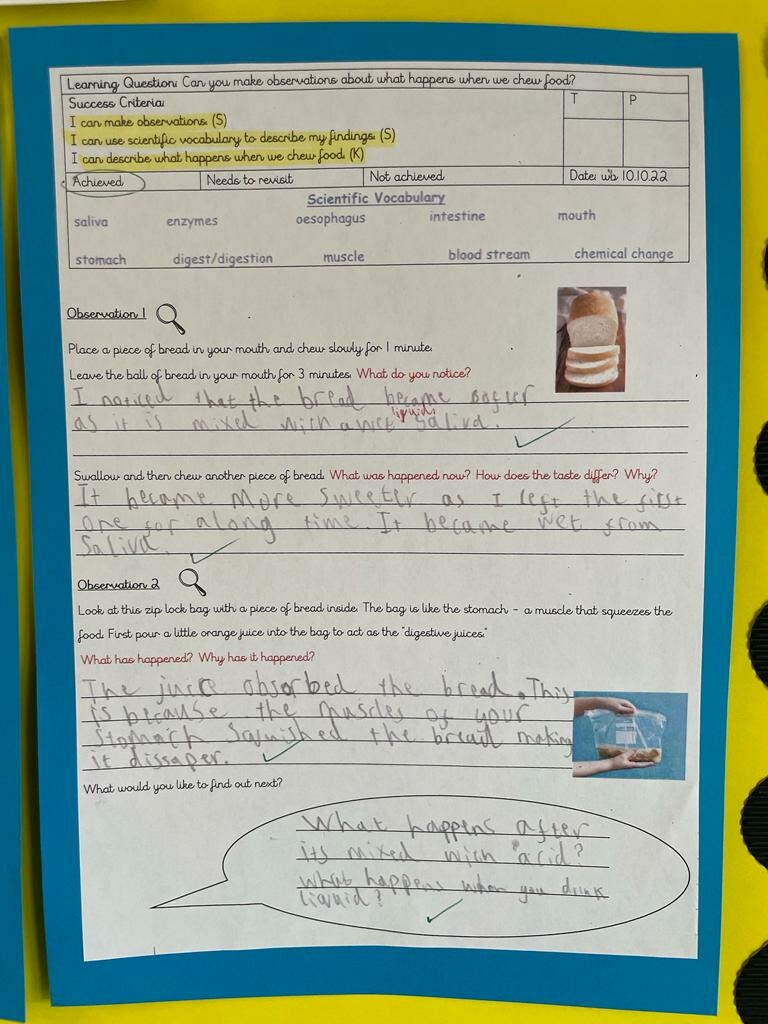 Learning Question: Can you make observations about what happens when we chew food?
Success Criteria:
T
P
I can make observations. (S)
I can use scientific vocabulary to describe my findings. (S)
I can describe what happens when we chew food. (K)
Achieved
Needs to revisit
Not achieved
Date: wb 10.10.22
Scientific Vocabulary
saliva enzymes oesophagus intestine mouth
stomach digest/digestion muscle blood stream chemical change
Observation 1
Place a piece of bread in your mouth and chew slowly for 1 minute.
Leave the ball of bread in your mouth for 3 minutes. What do you notice?
I noticed that the bread became softer
liquid
as it is mixed with a wet saliva.
Swallow and then chew another piece of bread. What was happened now? How does the taste differ? Why?
It became more sweeter as I left the first
one for along time. It became wet from
saliva.
Observation 2
Look at this zip lock bag with a piece of bread inside. The bag is like the stomach – a muscle that squeezes the
food. First pour a little orange juice into the bag to act as the "digestive juices."
What has happened? Why has it happened?
The juice obsorbed the bread. This
is because the muscles of your
Stomach Squished the bread making
it dissaper.
What would you like to find out next?
What happens after
its mixed with acid?
what happens when you drink
liquid?